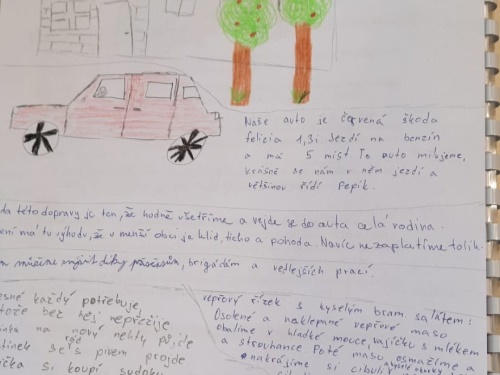 Naše auto je červená škoda
felicia 1,3i Jezdí na benzín
a má 5 míst To auto milujeme,
krásně se nám v něm jezdí a
většinou řídí Pepík.
da této dopravy je ten, že hodně ušetříme a vejde se do auta celá rodina.
ení má tu výhodu, že v menší obci je klid, ticho a pohoda. Navíc nezaplatíme tolik.
můžeme snížit díky přesčasům, brigádám a vedlejších prací.
esné každý potřebuje,
tože bez něj nepřežije
inka na nový nehty půjde
tínek se rád s pivem projde
ička si koupí sudoku
vepřový řízek s kyselým bram. salátem:
Osolené a naklepané vepřové maso
obalíme v hladké mouce, vajíčku s mlékem
a strouhance Poté maso osmažíme a
nakrájíme si cibuli